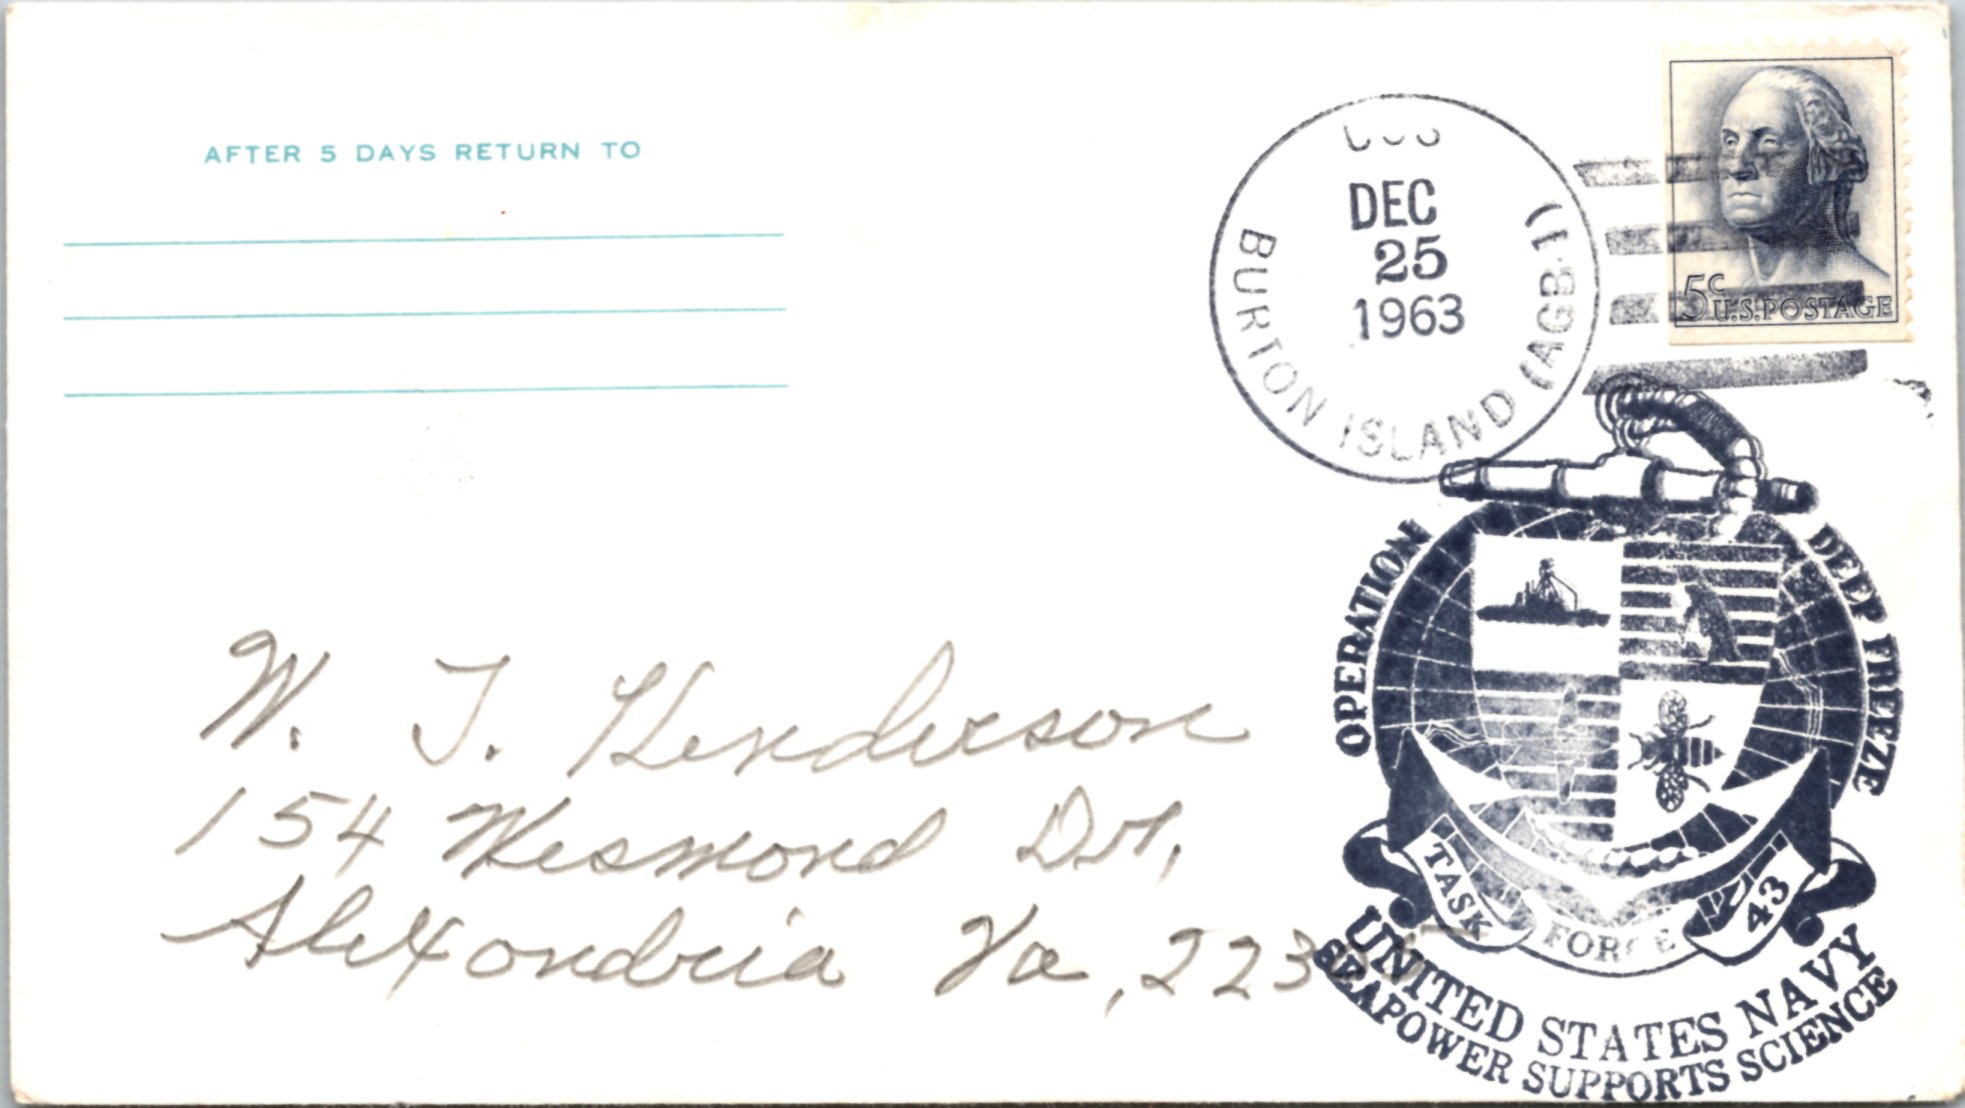 AFTER 5 DAYS RETURN TO
USS
DEC
25
1963
BURTON ISLAND (AGB-1)
5c U.S. POSTAGE
OPERATION DEEP FREEZE
TASK FORCE 43
UNITED STATES NAVY
SEAPOWER SUPPORTS SCIENCE
W. T. Henderson
154 Wesmond Dr,
Alexandria Va,